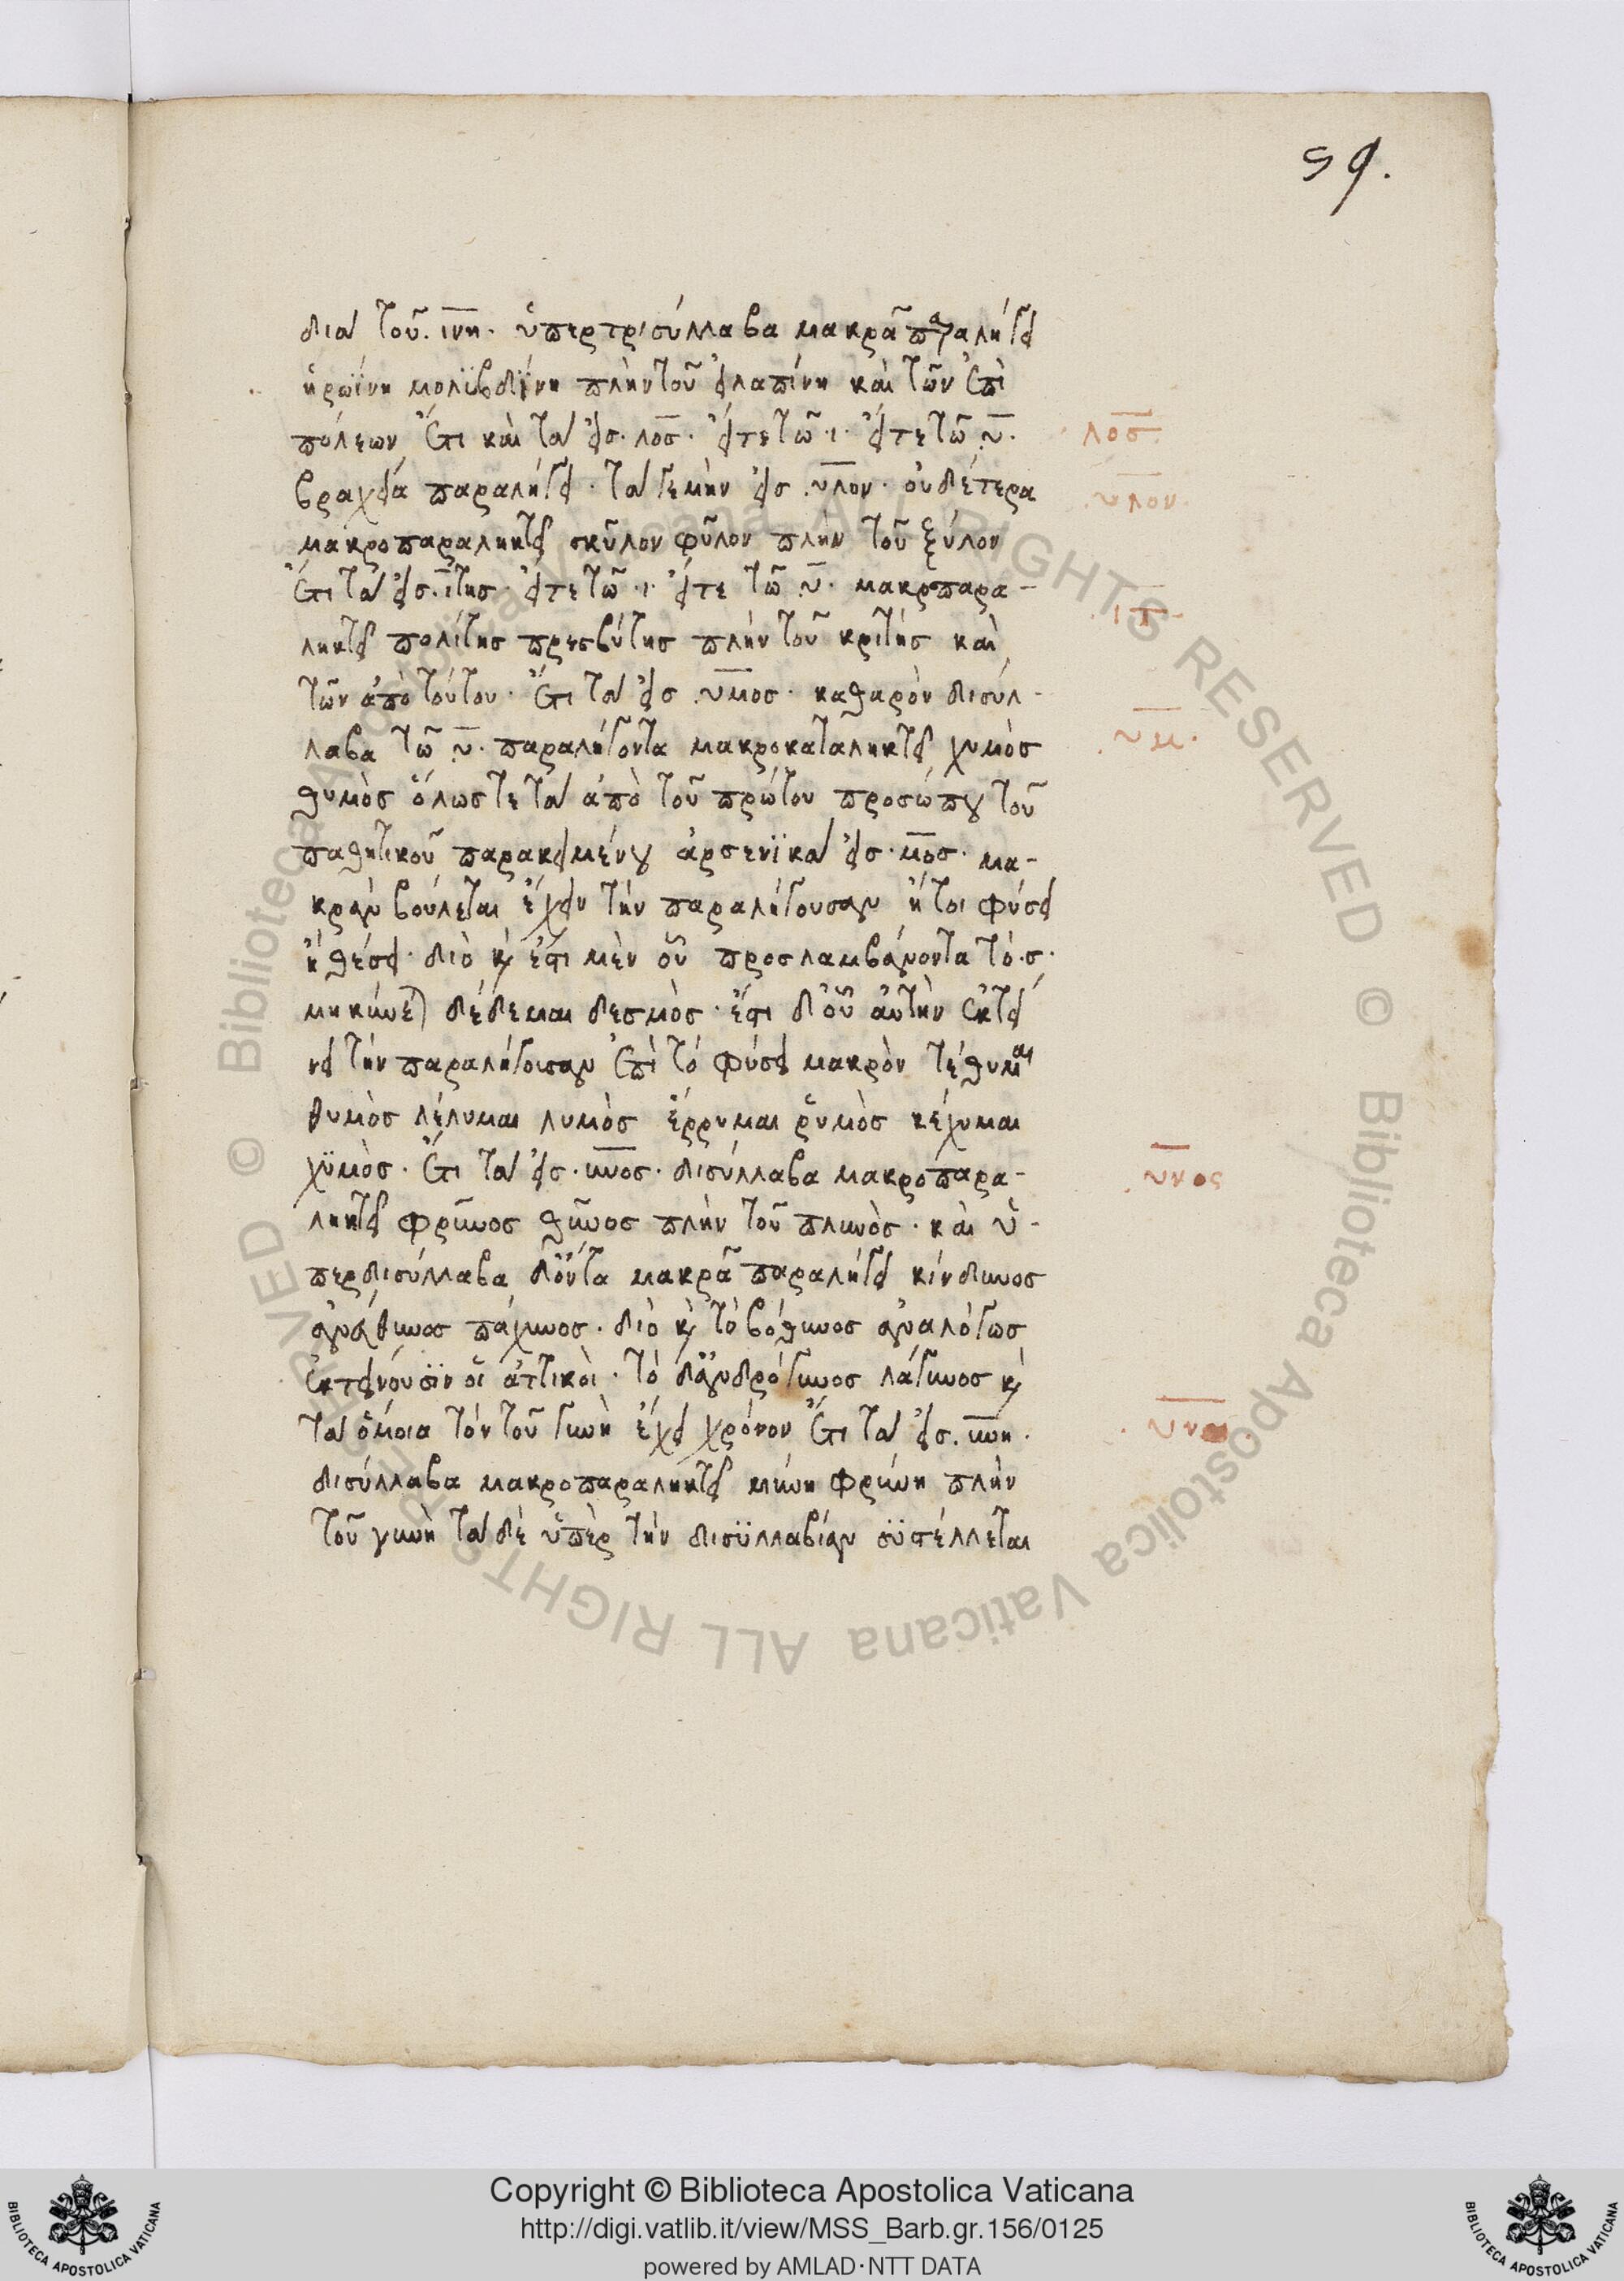 59.
διὰ τοῦ. ινη. ὑπερτρισύλλαβα μακρᾶ παραλήγει
ἡρωΐνη μολϊβδΐνη πλὴν τοῦ εἰλαπίνη καὶ τῶν ἐπὶ
πόλεων Ἔτι καὶ τὰ εἰς. λος. εἴτε τῶ. ι. εἴτε τῶ υ.
βραχεία παραλήγει. τὰ γε μὴν εἰς. υλον. οὐδέτερα
μακροπαραληκτεῖ σκῦλον φῦλον πλὴν τοῦ ξύλον
Ἔτι τὰ εἰς. ιτης. εἴτε τῶ. ι. εἴτε τῶ υ. μακροπαρα-
ληκτεῖ πολίτης πρεσβύτης πλὴν τοῦ κριτής καὶ
τῶν ἀπὸ τούτου. Ἔτι τὰ εἰς. υμος. καθαρὸν δισύλ-
λαβα τῶ υ. παραλήγοντα μακροκαταληκτεῖ χυμὸς
θυμὸς ὅλως τε τὰ ἀπὸ τοῦ πρώτου προσώπου τοῦ
παθητικοῦ παρακειμένου ἀρσενϊκὰ εἰς. μος. μα-
κρὰν βούλεται ἔχειν τὴν παραλήγουσαν ἤτοι φύσει
ἢ θέσει. διὸ καὶ ἔστι μὲν οὗ προσλαμβάνοντα τὸ. σ.
μηκύνεται δέδεμαι δεσμὸς. ἔστι δ' οὗ αὐτὴν ἐκτεί
νει τὴν παραλήγουσαν ἐπὶ τὸ φύσει μακρὸν τέθυμαι
θυμὸς λέλυμαι λυμὸς ἔρρυμαι ῥυμὸς κέχυμαι
χϋμὸς. Ἔτι τὰ εἰς. υνος. δισύλλαβα μακροπαρα-
ληκτεῖ φρῦνος θῦνος πλὴν τοῦ πλυνὸς. καὶ ὑ-
περδισύλλαβα δ' ὄντα μακρᾶ παραλήγει κίνδυνος
εὐθυνος πάχυνος. διὸ καὶ τὸ βόθυνος ἀναλόγως
ἐκτείνουσϊν οἱ ἀττικοὶ. τὸ δ' ἀνδρόγυνος λάγυνος καὶ
τὰ ὅμοια τὸν τοῦ γυνὴ ἔχει χρόνον Ἔτι τὰ εἰς. υνη.
δισύλλαβα μακροπαραληκτεῖ μύνη φρύνη πλὴν
τοῦ γυνὴ τὰ δὲ ὑπὲρ τὴν δισϋλλαβίαν σϋστέλλεται
λος.
υλον.
ιτ
υμ.
υνος
υνη.
Copyright © Biblioteca Apostolica Vaticana
http://digi.vatlib.it/view/MSS_Barb.gr.156/0125
powered by AMLAD·NTT DATA
© Biblioteca Apostolica Vaticana ALL RIGHTS RESERVED © Biblioteca Apostolica Vaticana ALL RIGHTS RESERVED
BIBLIOTECA APOSTOLICA VATICANA
BIBLIOTECA APOSTOLICA VATICANA